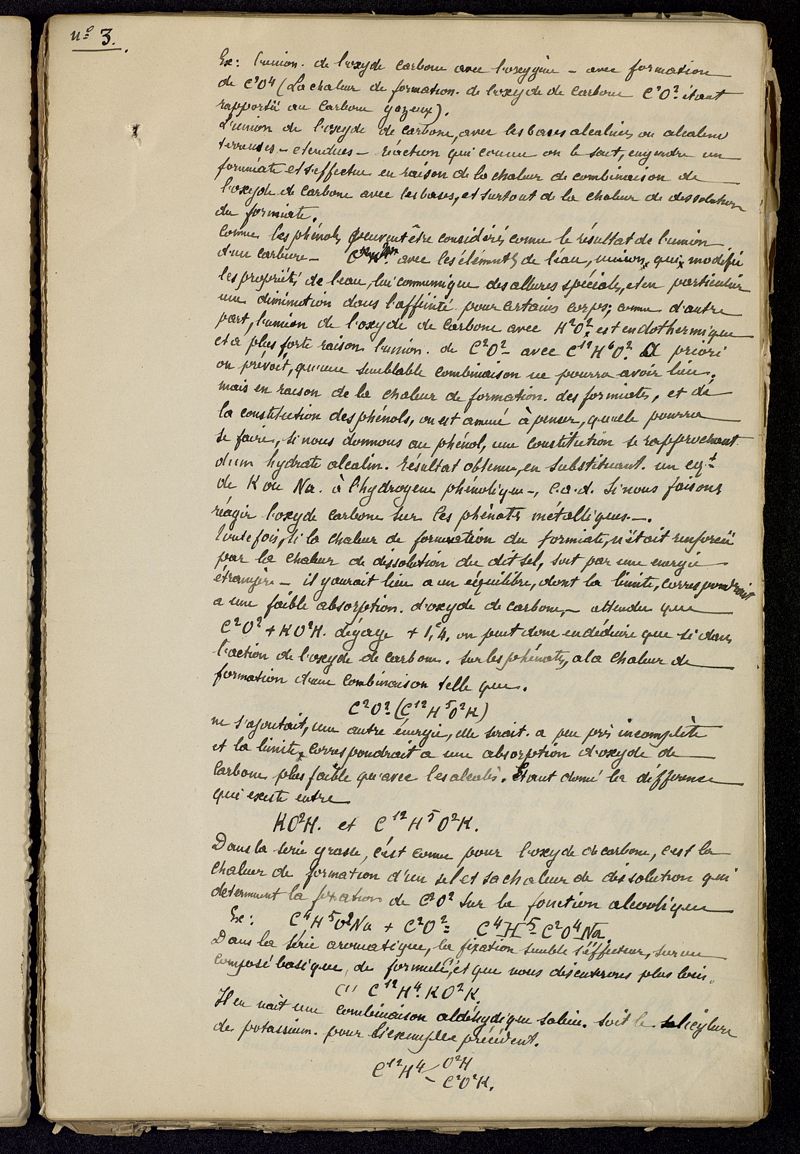 nº 3.
Ex: l'union. de l'oxyde carbone avec l'oxygène - avec formation
de C²O⁴ (La chaleur de formation. de l'oxyde de carbone C²O² étant
rapporté au carbone gazeux).
L'union de l'oxyde de carbone, avec les bases alcalines ou alcalino
terreuses - étendues - réaction qui comme on le sait, engendre un
formiate et s'effectue en raison de la chaleur de combinaison de
l'oxyde de carbone avec les bases, et surtout de la chaleur de dissolution
du formiate.
Comme les phénols, peuvent être considérés comme le résultat de l'union
d'un carbure - avec les éléments de l'eau, union, qui modifie
les propriétés de l'eau, lui communique des allures spéciales, et en particulier
une diminution dans l'affinité pour certains corps; comme d'autre
part, l'union de l'oxyde de carbone avec H²O² est endothermique
et a plus forte raison l'union. de C²O² avec C¹²H⁶O². A priori
on prévoit, qu'une semblable combinaison ne pourra avoir lieu.
mais en raison de la chaleur de formation. des formiates, et de
la constitution des phénols, on est amené à penser, qu'elle pourra
se faire, si nous donnons au phénol, une constitution se rapprochant
d'un hydrate alcalin. résultat obtenu, en substituant. un eqᵗ
de K ou Na. à l'hydrogène phénolique -, c.a.d. si nous faisons
réagir l'oxyde carbone sur les phénats métalliques -.
Toutefois, si la chaleur de formation du formiate, n'était renforcée
par la chaleur de dissolution du dit sel, soit par une énergie
étrangère - il y aurait lieu a un équilibre, dont la limite, correspondrait
a une faible absorption. d'oxyde de carbone, - attendu que
C²O² + KO²H. dégage + 1,4, on peut donc en déduire que si dans
l'action de l'oxyde de carbone. sur les phénats, a la chaleur de
formation d'une combinaison telle que.
C²O² (C¹²H⁵O²K)
ne s'ajoutait, une autre énergie, elle serait. a peu près incomplète
et la limite, correspondrait a une absorption d'oxyde de
carbone plus faible qu'avec les alcalis. Etant donné la différence
qui existe entre
KO²H. et C¹²H⁵O²K.
Dans la série grasse, c'est comme pour l'oxyde de carbone, c'est la
chaleur de formation d'un sel et sa chaleur de dissolution qui
déterminent la fixation de C²O² sur la fonction alcoolique
Ex: C⁴H⁵O²Na + C²O² = C⁴H⁵ - C²O⁴Na.
Dans la série aromatique, la fixation semble s'effectuer, sur un
composé basique, de formule, et que nous discuterons plus loin.
C¹²H⁴. KO²K.
Il en naît une combinaison aldéhydique saline. soit le salicylure
de potassium. pour l'exemple précédent.
C¹²H⁴ - O²H
- C²O²K.